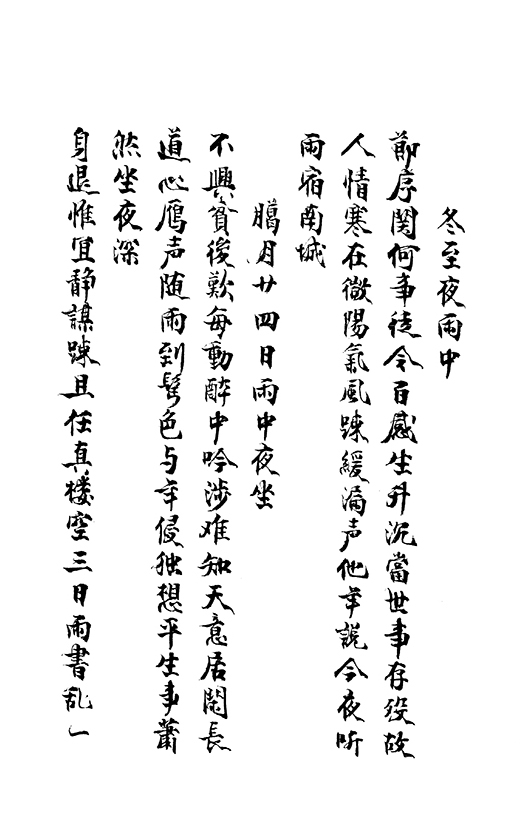 冬至夜雨中
節序関何事徒令百感生升沉當世事存殁故
人情寒在微陽氣風踈緩漏声他年説今夜听
雨宿南城
臈月廿四日雨中夜坐
不興貧後歎每動醉中吟涉难知天意居閑長
道心鴈声随雨到髩色与年侵独想平生事蕭
然坐夜深
身退惟宜静謀踈且任真楼空三日雨書乱一